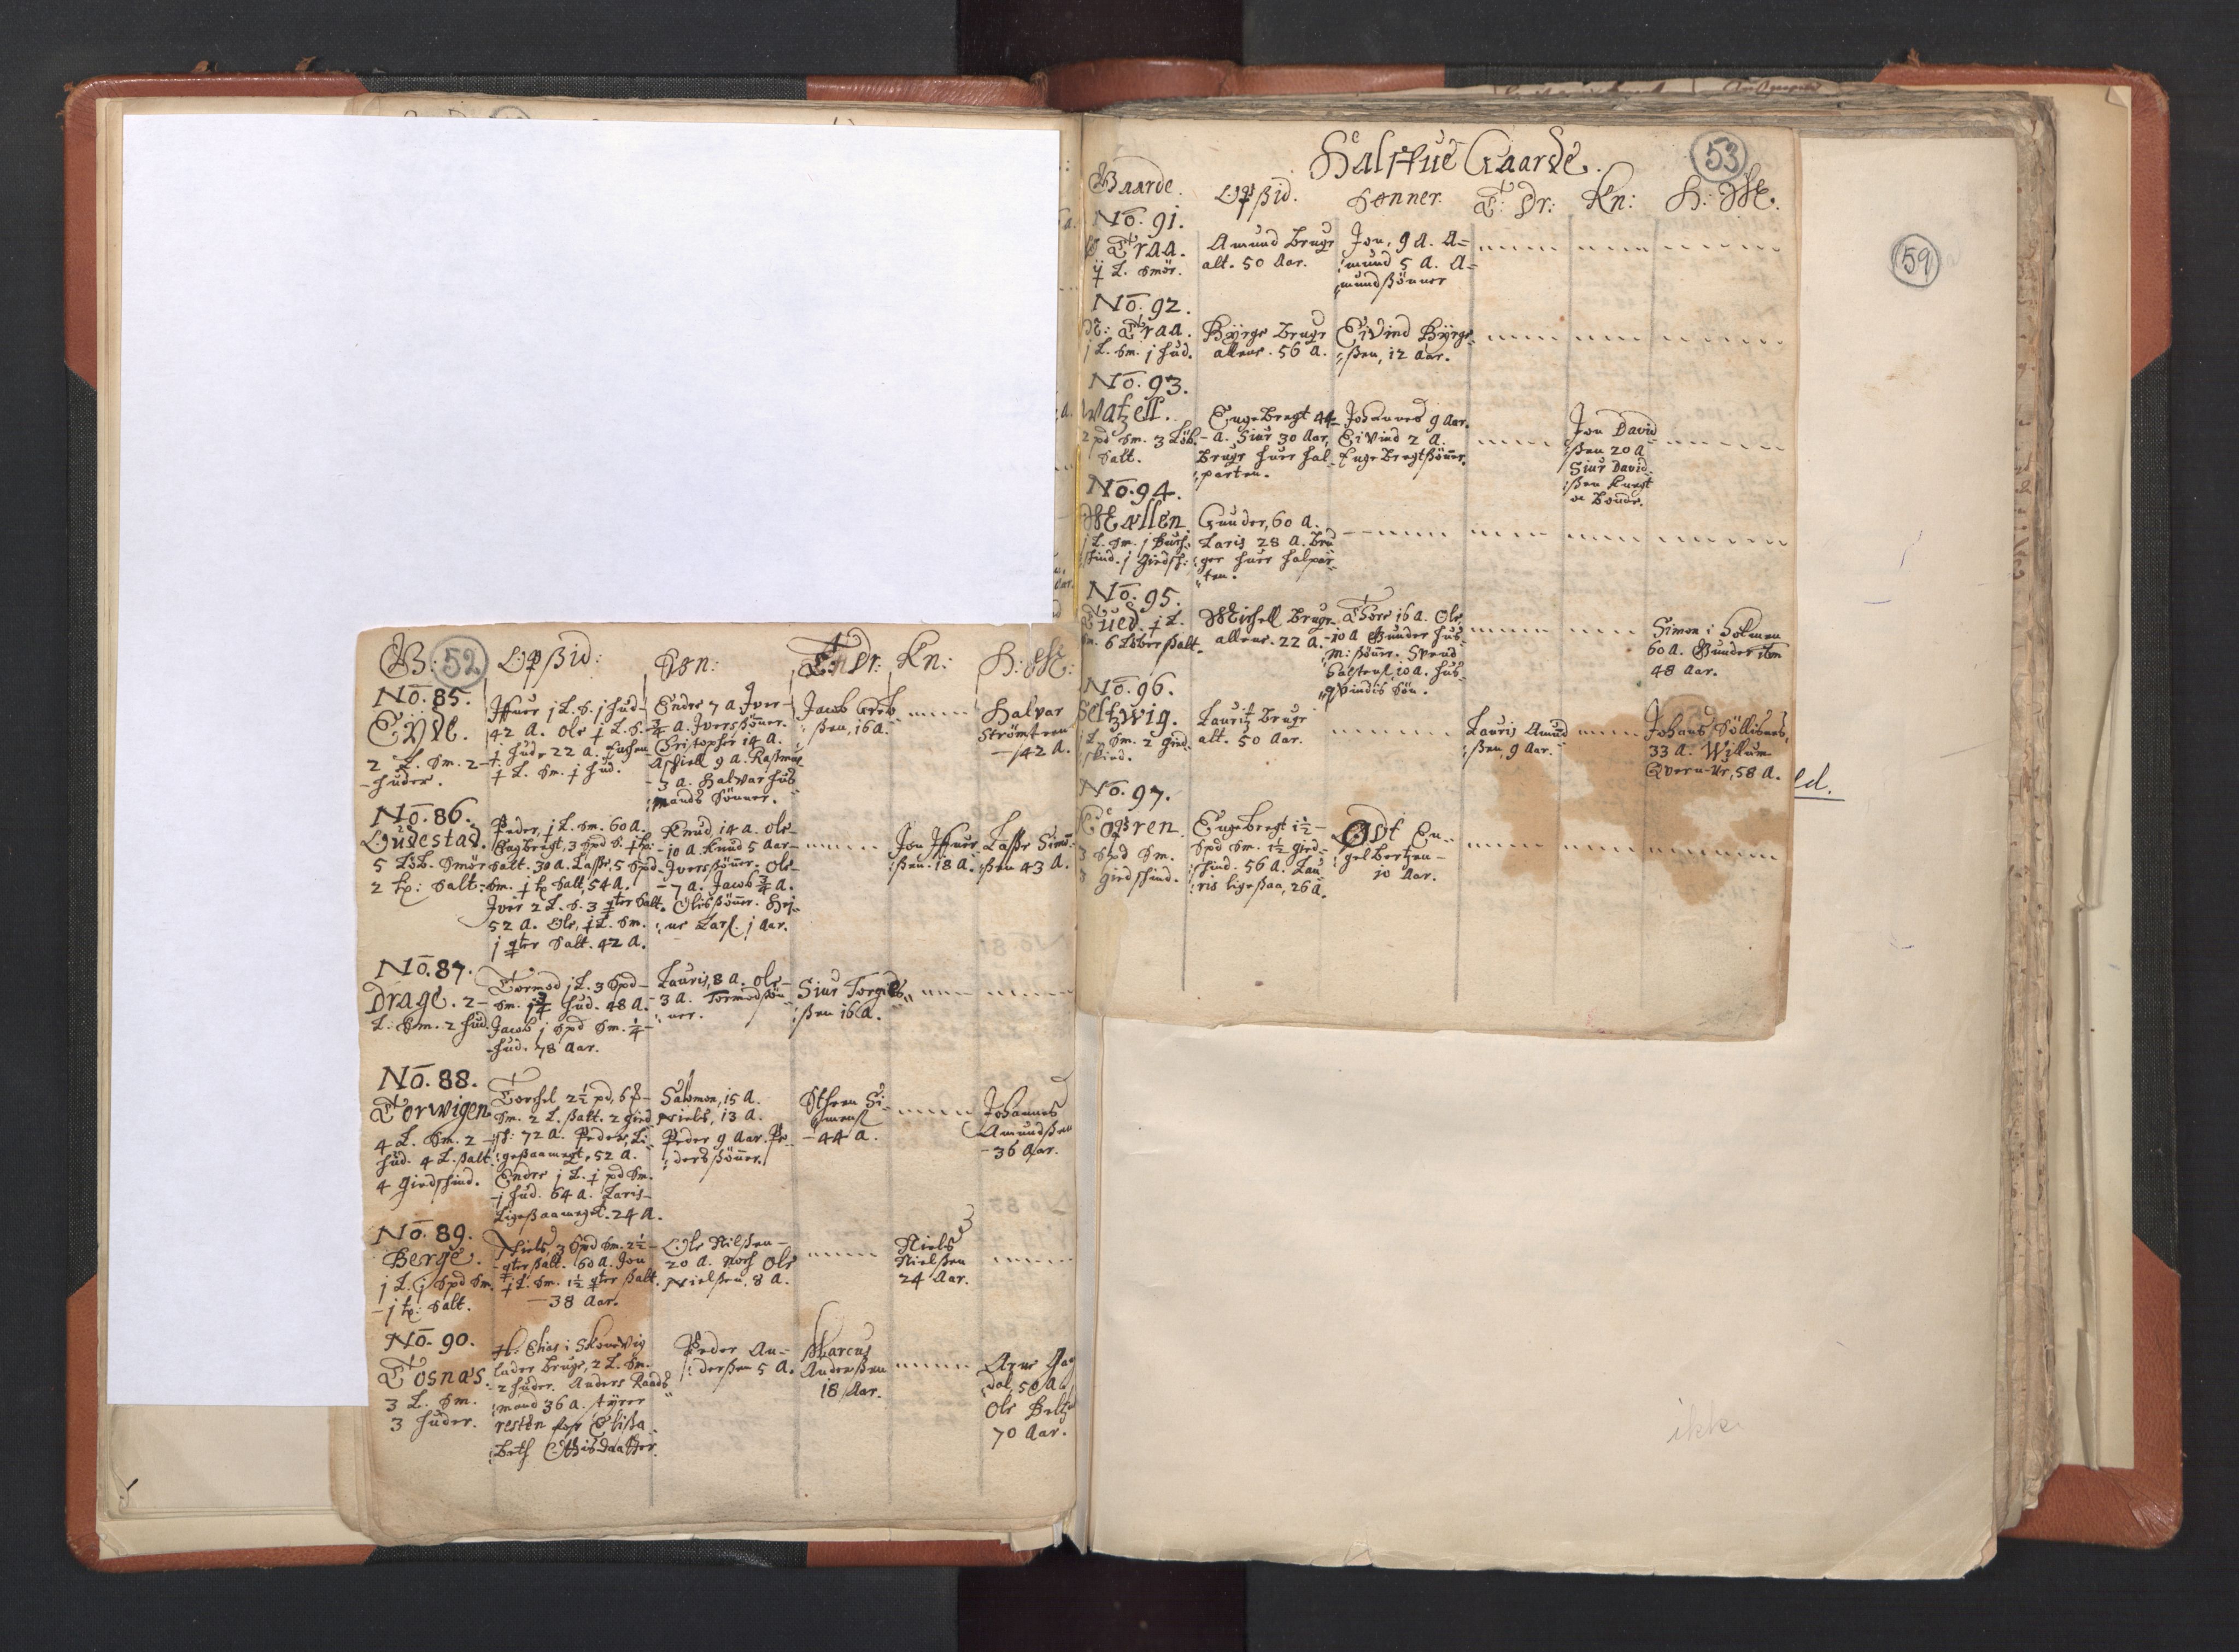 G: 52 Opsid: Søn: T: Dr: Kn: H: M:
No. 85.
Eyde.
2 L. Sm. 2
huder.
Iffuer j L. S. j hud
42 A. Ole
j hud. 22 A.
Endre 7 A. Iver
3/4 A. Iversønner.
Christopher 14 A.
Aschiell 9 A. Rasmus
3 A. Halvar hus
mands Sønner.
Jacob
ßen, 16 A.
Halvar
Strømteen
42 A.
No. 86.
Gudestad.
5 Løb. Smør
2 tp: Salt:
Peder, j L. Sm. 60 A.
Engbregt, 3 Spd S.
Salt. 30 A. Lasse, 5 Spd
Sm. j tp Salt, 54 A.
Iver 2 L. S. 3 qter Salt.
52 A. Ole, j L. Sm.
j qter Salt. 42 A.
Knud, 14 A. Ole
10 A. Knud 5 Aar
Iversønner. Ole
7 A. Jacob 3/4 A.
Olesßønner. Hej
ne Larß. j Aar.
Jon Iffuer
ßen. 18 A.
Lasse Simo
ßen 43 A.
No. 87.
Drage. 2
L: Sm. 2 hud.
Tormod j L. 3 Spd
Sm. j 3/4 hud. 48 A.
Jacob j Spd Sm. 1/4
hud. 78 Aar.
Lauris, 8 A. Ole
3 A. Tormodßøn
ner.
Siur Torgils
ßen 16 A.
No. 88.
Torwigen
4 L. Sm. 2
hud. 4 L. ßalt.
4 Giedskind.
Torchel 2 1/2 pd, 6
Sm. 2 L. ßalt. 2 gied
sk: 72 A. Peder, Li
geßaameget, 52 A.
Endre j L. j pd Sm.
j hud. 64 A. Laris
Ligeßaameget. 24 A.
Salomon, 15 A.
Niels, 13 A.
Peder 9 Aar. Pe
dersßønner.
Sthren Si
monß
44 A.
Johannes
Amundßen
36 Aar.
No. 89.
Berge.
j L. j Spd Sm.
j tp: Salt.
Niels, 3 Spd Sm. 2 1/2
qter ßalt. 60 A. Jon
j L. Sm. 1 1/2 qter ßalt.
38 Aar.
Ole Nilßen
20 A. Noch Ole
Nielßen, 8 A.
Niels
Nielßen
24 Aar.
No. 90.
Tosnæs.
3 L. Sm.
3 huder.
H. Elias i Skonevig
lader bruge, 2 L. Sm.
2 huder. Anders Raads
mand 36 A. styrer
resten for Elißa
beth
Peder An
derßen 5 A.
Marcus
Anderßen
18 Aar.
Arne
dal, 50 A.
Ole
70 Aar.
Halffue Gaarde. 53
Gaarde. Opßid. Sønner. T: Dr: Kn: H: M.
No. 91.
Traa.
L. Smør.
Amund Bruge
alt. 50 Aar.
Jon, 9 A. A=
mund 5 A. A=
mundßønner
No. 92.
Traa.
j L. Sm. j hud.
Byrge Bruge
allene. 56 A.
Eivind Byrge
ßen, 12 Aar.
No. 93.
Watzell.
2 pd Sm. 3 Løb.
Salt.
Engebregt 44
A. Siur 30 Aar,
Bruge huer hal
parten.
Johannes 9 Aar.
Eivind 2 A.
Engebregtßønner.
Jon David
ßen 20 A
Siur David
ßen knegt
oc Bonde.
No. 94.
Mallen
j L. Sm. j Buck
skind. j Giedsk:
Gunder, 60 A.
Laris 28 A. Bru
ger huer halpar
ten.
No. 95.
Tued.
Sm. 6 Løber ßalt.
Michell Bruge
allene. 22 A.
Thore 16 A. Ole
10 A Gunder hus
M: ßønner. Svend
Salstenß. 10 A. hus
qvindis Søn.
Simon i Holmen
60 A. Gunder item
48 Aar.
No. 96.
Seltzwig.
j L. Sm. 2 gied
skind.
Lauritz Bruge
alt. 50 Aar.
Lauris Amund
ßen, 9 Aar.
Johans Söllisnes,
33 A. Willum
Qvern-Ur, 58 A.
No. 97.
3 Spd Sm.
3 Giedskind.
Engebregt 1 1/2
Spd Sm. 1 1/2 gied
skind. 56 A. Lau
ris ligeßaa, 26 A.
Odt En
gelbertzen
10 Aar.
59
ld.
ikke